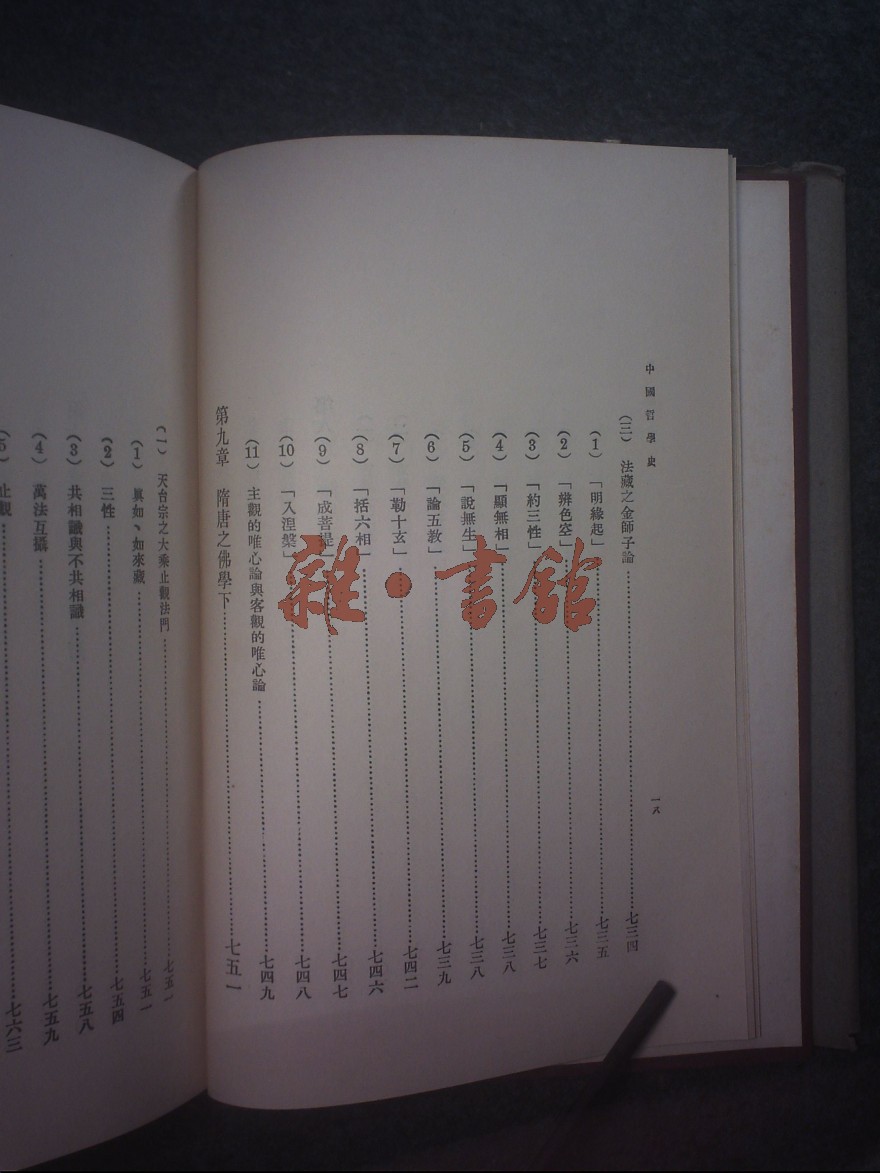 中國哲學史
一八
(三) 法藏之金師子論……七三四
(1) 「明緣起」……七三五
(2) 「辨色空」……七三六
(3) 「約三性」……七三七
(4) 「顯無相」……七三八
(5) 「說無生」……七三八
(6) 「論五教」……七三九
(7) 「勒十玄」……七四二
(8) 「括六相」……七四六
(9) 「成菩提」……七四七
(10) 「入涅槃」……七四八
(11) 主觀的唯心論與客觀的唯心論……七四九
第九章 隋唐之佛學下……七五一
(一) 天台宗之大乘止觀法門……七五一
(1) 眞如、如來藏……七五一
(2) 三性……七五四
(3) 共相識與不共相識……七五八
(4) 萬法互攝……七五九
(5) 止觀……七六三
雜·書館